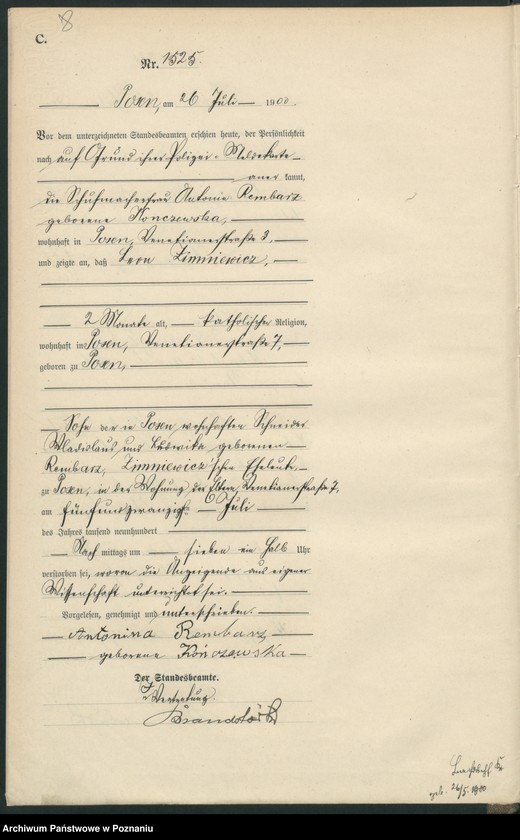 8
C.
Nr. 1525.
Posen, am 26 Juli 1900.
Vor dem unterzeichneten Standesbeamten erschien heute, der Persönlichkeit
nach auf Grund ihrer Polizei-Meldekarte
aner kannt,
die Schuhmacherfrau Antonie Rembarz
geborene Konczewska,
wohnhaft in Posen, Venetianerstraße 3,
und zeigte an, daß Leon Zimniewicz,
2 Monate alt, katholischer Religion,
wohnhaft in Posen, Venetianerstraße 7,
geboren zu Posen,
Sohn der in Posen wohnhaften Schneider
Wladislaus und Ludwika geborenen
Rembarz, Zimniewicz'schen Eheleute,
zu Posen, in der Wohnung der Eltern, Venetianerstraße 7,
am fünfundzwanzigsten Juli
des Jahres tausend neunhundert
Nach mittags um sieben ein halb Uhr
verstorben sei, wovon die Anzeigende aus eigener
Wissenschaft unterrichtet sei.
Vorgelesen, genehmigt und unterschrieben.
Antonina Rembarz
geborene Kończewska
Der Standesbeamte.
In Vertretung.
geb. 26/5. 1900
Archiwum Państwowe w Poznaniu